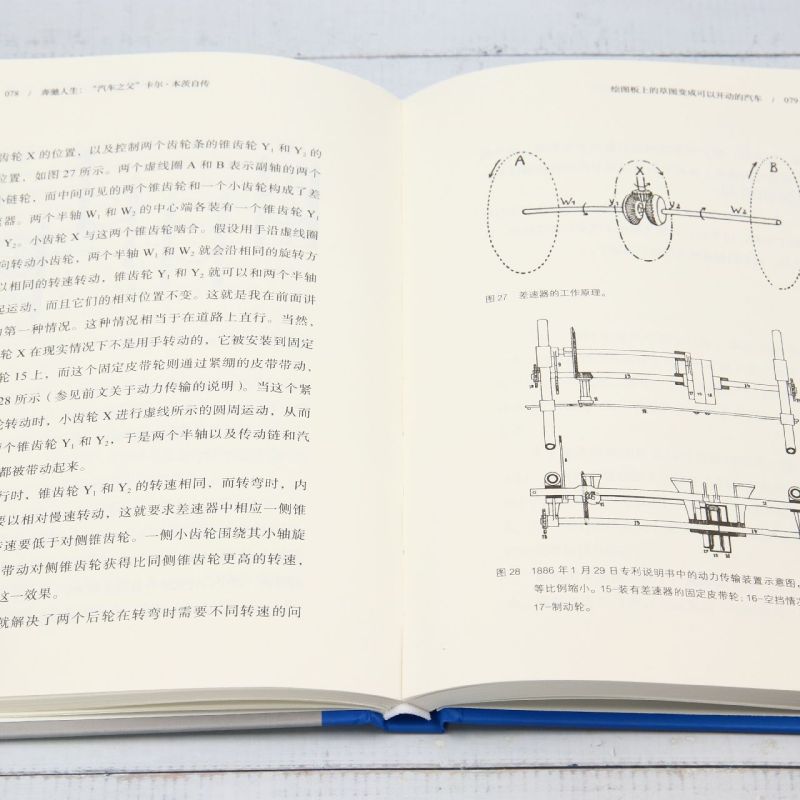 078 / 奔驰人生：“汽车之父”卡尔·本茨自传
齿轮 X 的位置，以及控制两个齿轮条的锥齿轮 Y₁ 和 Y₂ 的
位置，如图 27 所示。两个虚线圈 A 和 B 表示副轴的两个
小链轮，而中间可见的两个锥齿轮和一个小齿轮构成了差
速器。两个半轴 W₁ 和 W₂ 的中心端各装有一个锥齿轮 Y₁
Y₂。小齿轮 X 与这两个锥齿轮啮合。假设用手沿虚线圈
向转动小齿轮，两个半轴 W₁ 和 W₂ 就会沿相同的旋转方
以相同的转速转动，锥齿轮 Y₁ 和 Y₂ 就可以和两个半轴
起运动，而且它们的相对位置不变。这就是我在前面讲
的第一种情况。这种情况相当于在道路上直行。当然，
轮 X 在现实情况下不是用手转动的，它被安装到固定
轮 15 上，而这个固定皮带轮则通过紧绷的皮带带动，
28 所示（参见前文关于动力传输的说明）。当这个紧
轮转动时，小齿轮 X 进行虚线所示的圆周运动，从而
个锥齿轮 Y₁ 和 Y₂，于是两个半轴以及传动链和汽
都被带动起来。
行时，锥齿轮 Y₁ 和 Y₂ 的转速相同，而转弯时，内
要以相对慢速转动，这就要求差速器中相应一侧锥
转速要低于对侧锥齿轮。一侧小齿轮围绕其小轴旋
带动对侧锥齿轮获得比同侧锥齿轮更高的转速，
这一效果。
就解决了两个后轮在转弯时需要不同转速的问
绘图板上的草图变成可以开动的汽车 / 079
A
X
B
W₁
y₁
y₂
W₂
图 27 差速器的工作原理。
图 28 1886 年 1 月 29 日专利说明书中的动力传输装置示意图，
等比例缩小。15-装有差速器的固定皮带轮；16-空挡情况
17-制动轮。